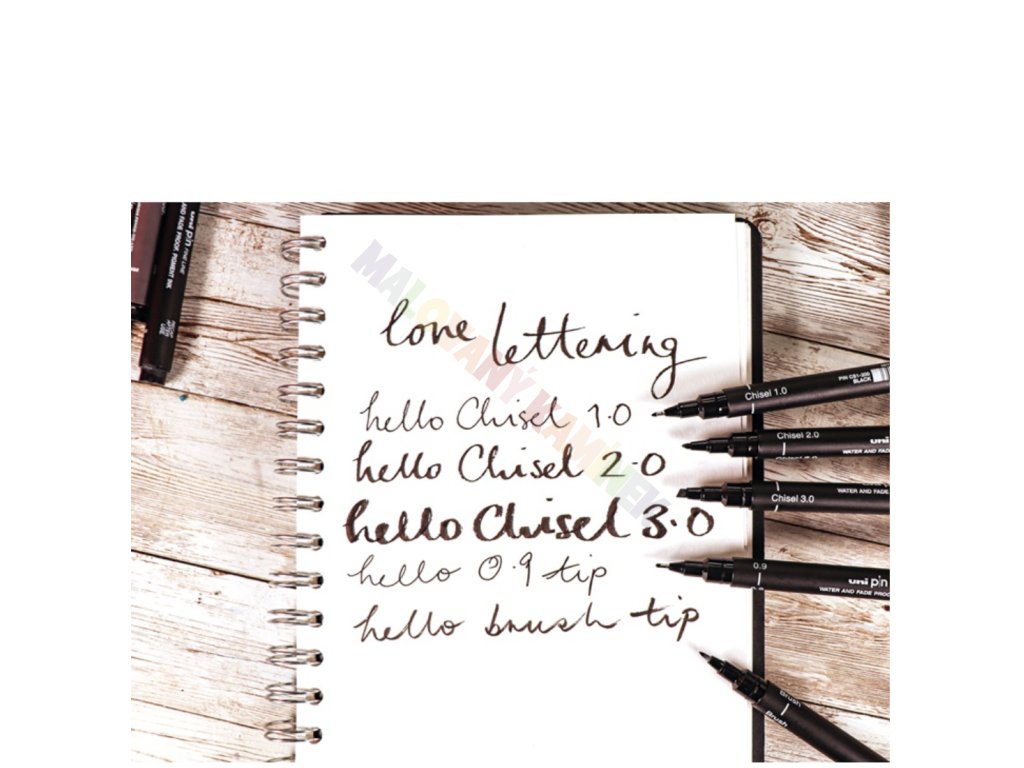 love lettering
hello Chisel 1.0
hello Chisel 2.0
hello Chisel 3.0
hello 0.9 tip
hello brush tip
MALOVANÝ KAMÍNEK
Chisel 1.0
PIN CS1-200
BLACK
Chisel 2.0
uni
WATER AND FAD
Chisel 3.0
WATER AND FADE
0.9
uni pin
WATER AND FADE PROO
Brush
Brush
uni pin FINE LINE
AND FADE PROOF, PIGMENT INK